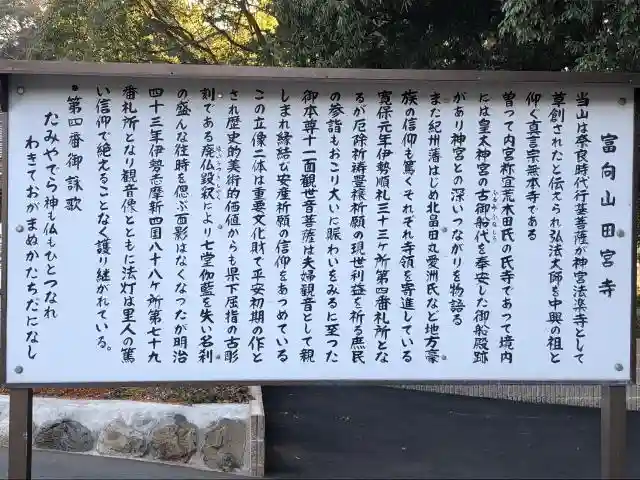 富向山田宮寺
当山は奈良時代行基菩薩が神宮法楽寺として
草創されたと伝えられ弘法大師を中興の祖と
仰ぐ真言宗無本寺である
曽って内宮祢宜荒木田氏の氏寺であって境内
には皇太神宮の古御船代を奉安した御船殿跡
があり神宮との深いつながりを物語る
また紀州藩はじめ北畠田丸愛洲氏など地方豪
族の信仰も篤くそれぞれ寺領を寄進している
寛保元年伊勢順礼三十三ヶ所第四番札所とな
るが厄除祈祷豊穣祈願の現世利益を祈る庶民
の参詣もおこり大いに賑わいをみるに至った
御本尊十一面観世音菩薩は夫婦観音として親
しまれ縁結び安産祈願の信仰をあつめている
この立像二体は重要文化財で平安初期の作と
され歴史的美術的価値からも県下屈指の古彫
刻である廃仏毀釈により七堂伽藍を失い名刹
の盛んな往時を偲ぶ面影はなくなったが明治
四十三年伊勢志摩新四国八十八ヶ所第七十九
番札所となり観音像とともに法灯は里人の篤
い信仰で絶えることなく護り継がれている。
・第四番御詠歌
たみやでら神も仏もひとつなれ
わきておがまぬかたちだになし